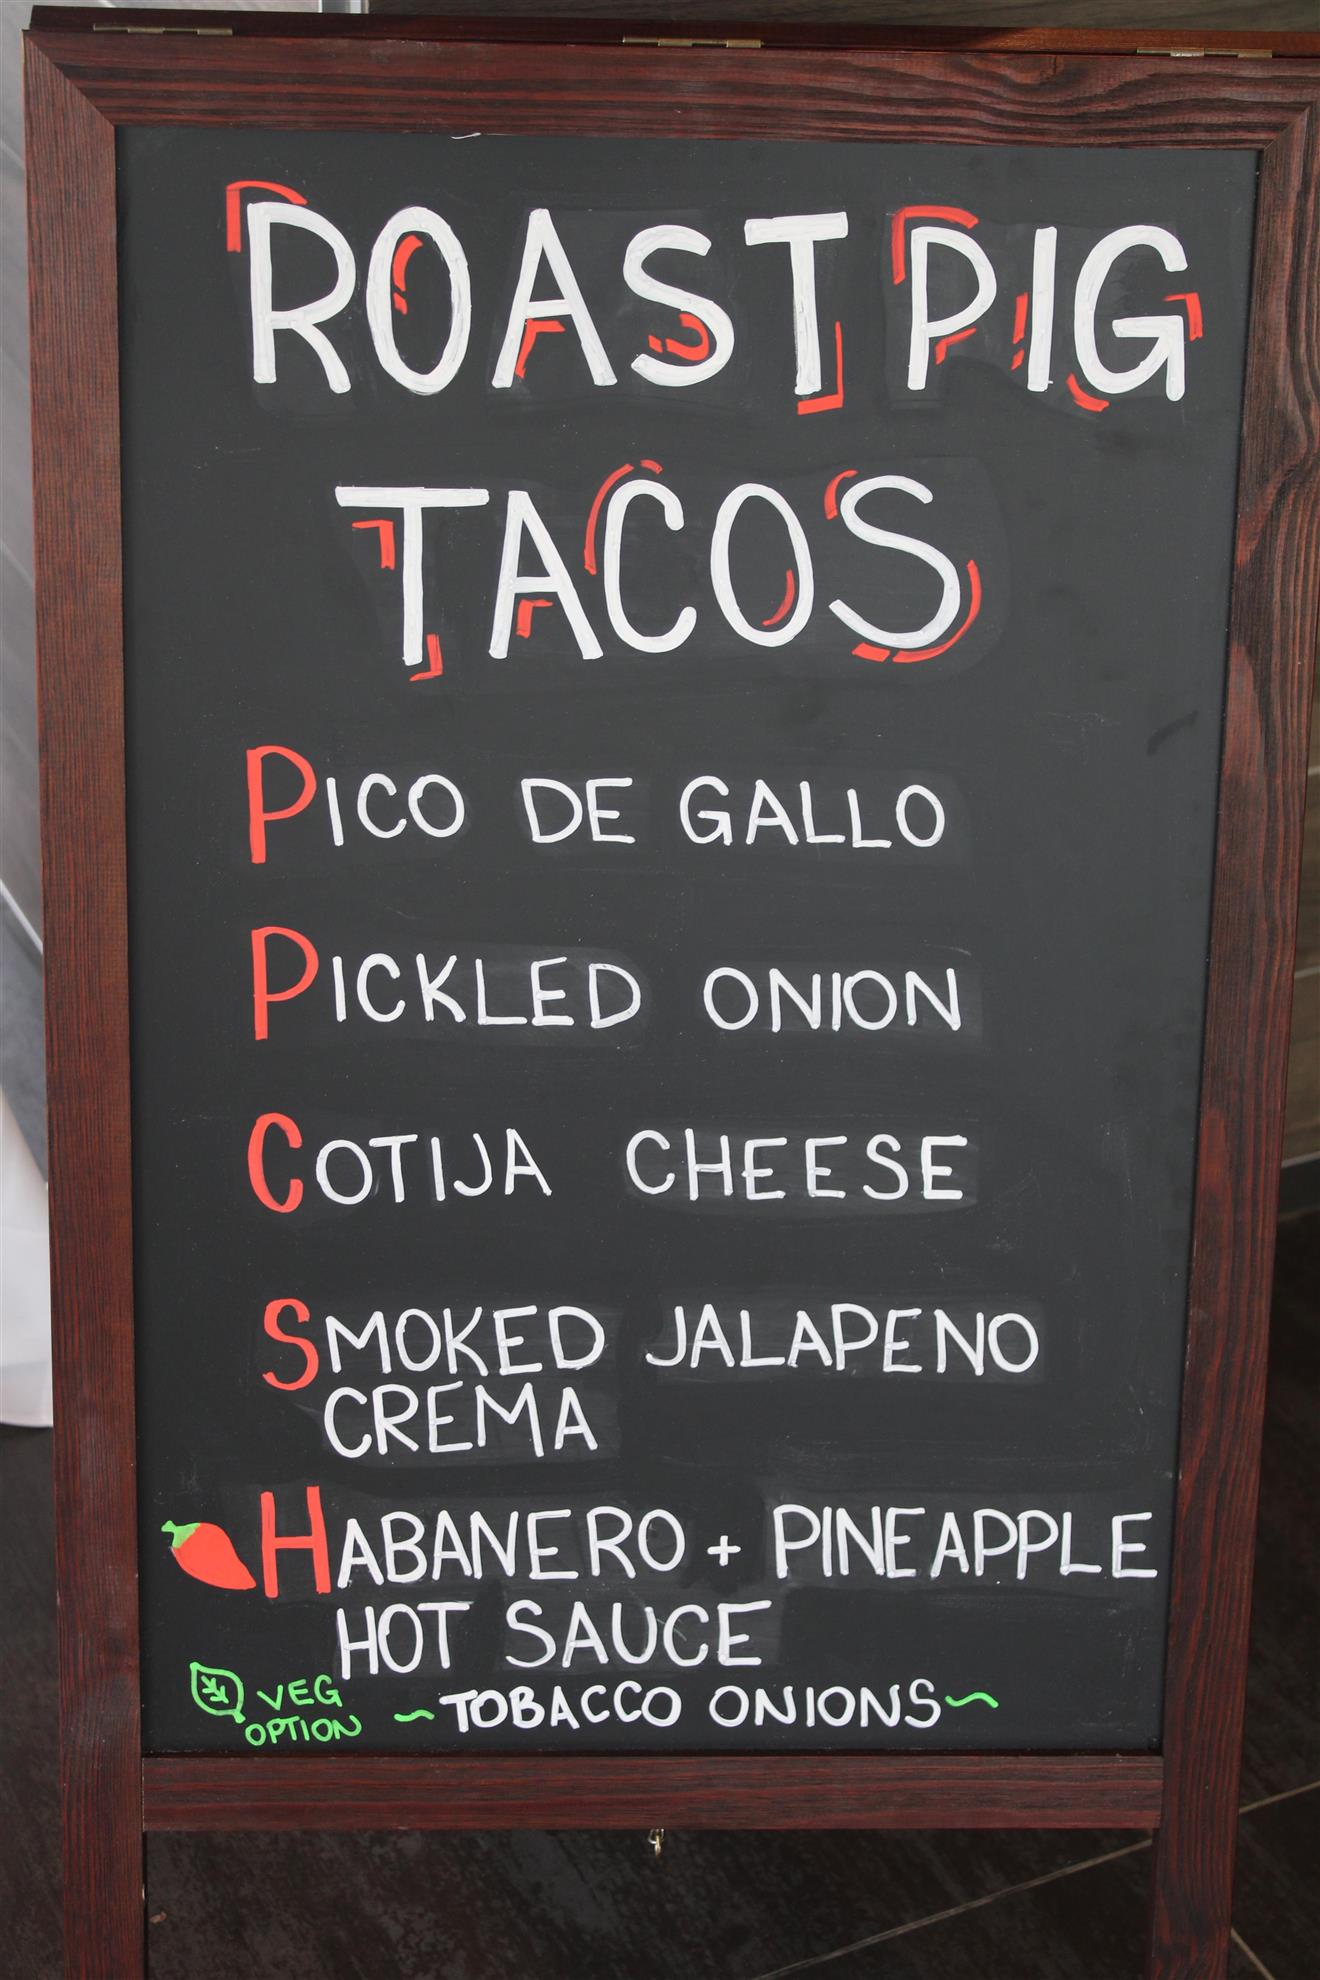 ROAST PIG
TACOS
PICO DE GALLO
PICKLED ONION
COTIJA CHEESE
SMOKED JALAPENO
CREMA
HABANERO + PINEAPPLE
HOT SAUCE
VEG
OPTION
~TOBACCO ONIONS~